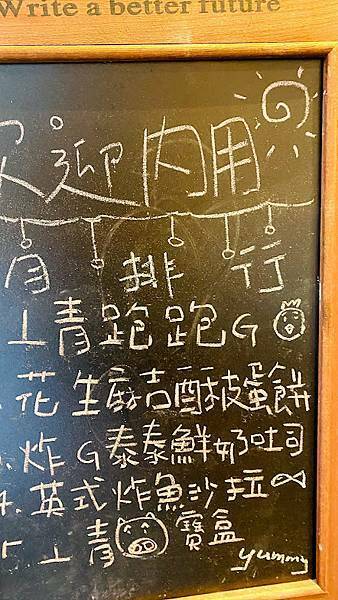 Write a better future
歡迎內用
月排行
1.上青跑跑G
2.花生麻吉酥皮蛋餅
3.炸G泰泰鮮奶吐司
4.英式炸魚沙拉
5.上青寶盒
yummy